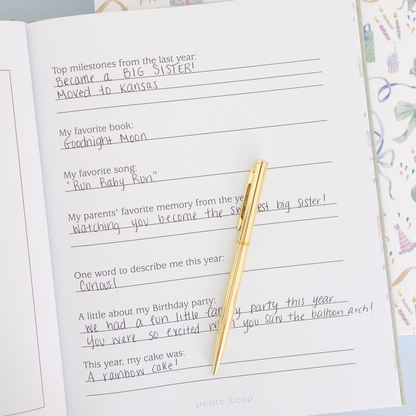 Top milestones from the last year:
Became a BIG SISTER!
Moved to Kansas
My favorite book:
Goodnight Moon
My favorite song:
"Run Baby Run"
My parents' favorite memory from the year:
Watching you become the big sister!
One word to describe me this year:
Curious!
A little about my Birthday party:
We had a fun little family party this year.
You were so excited when you saw the balloon arch!
This year, my cake was:
A rainbow cake!
petite keep